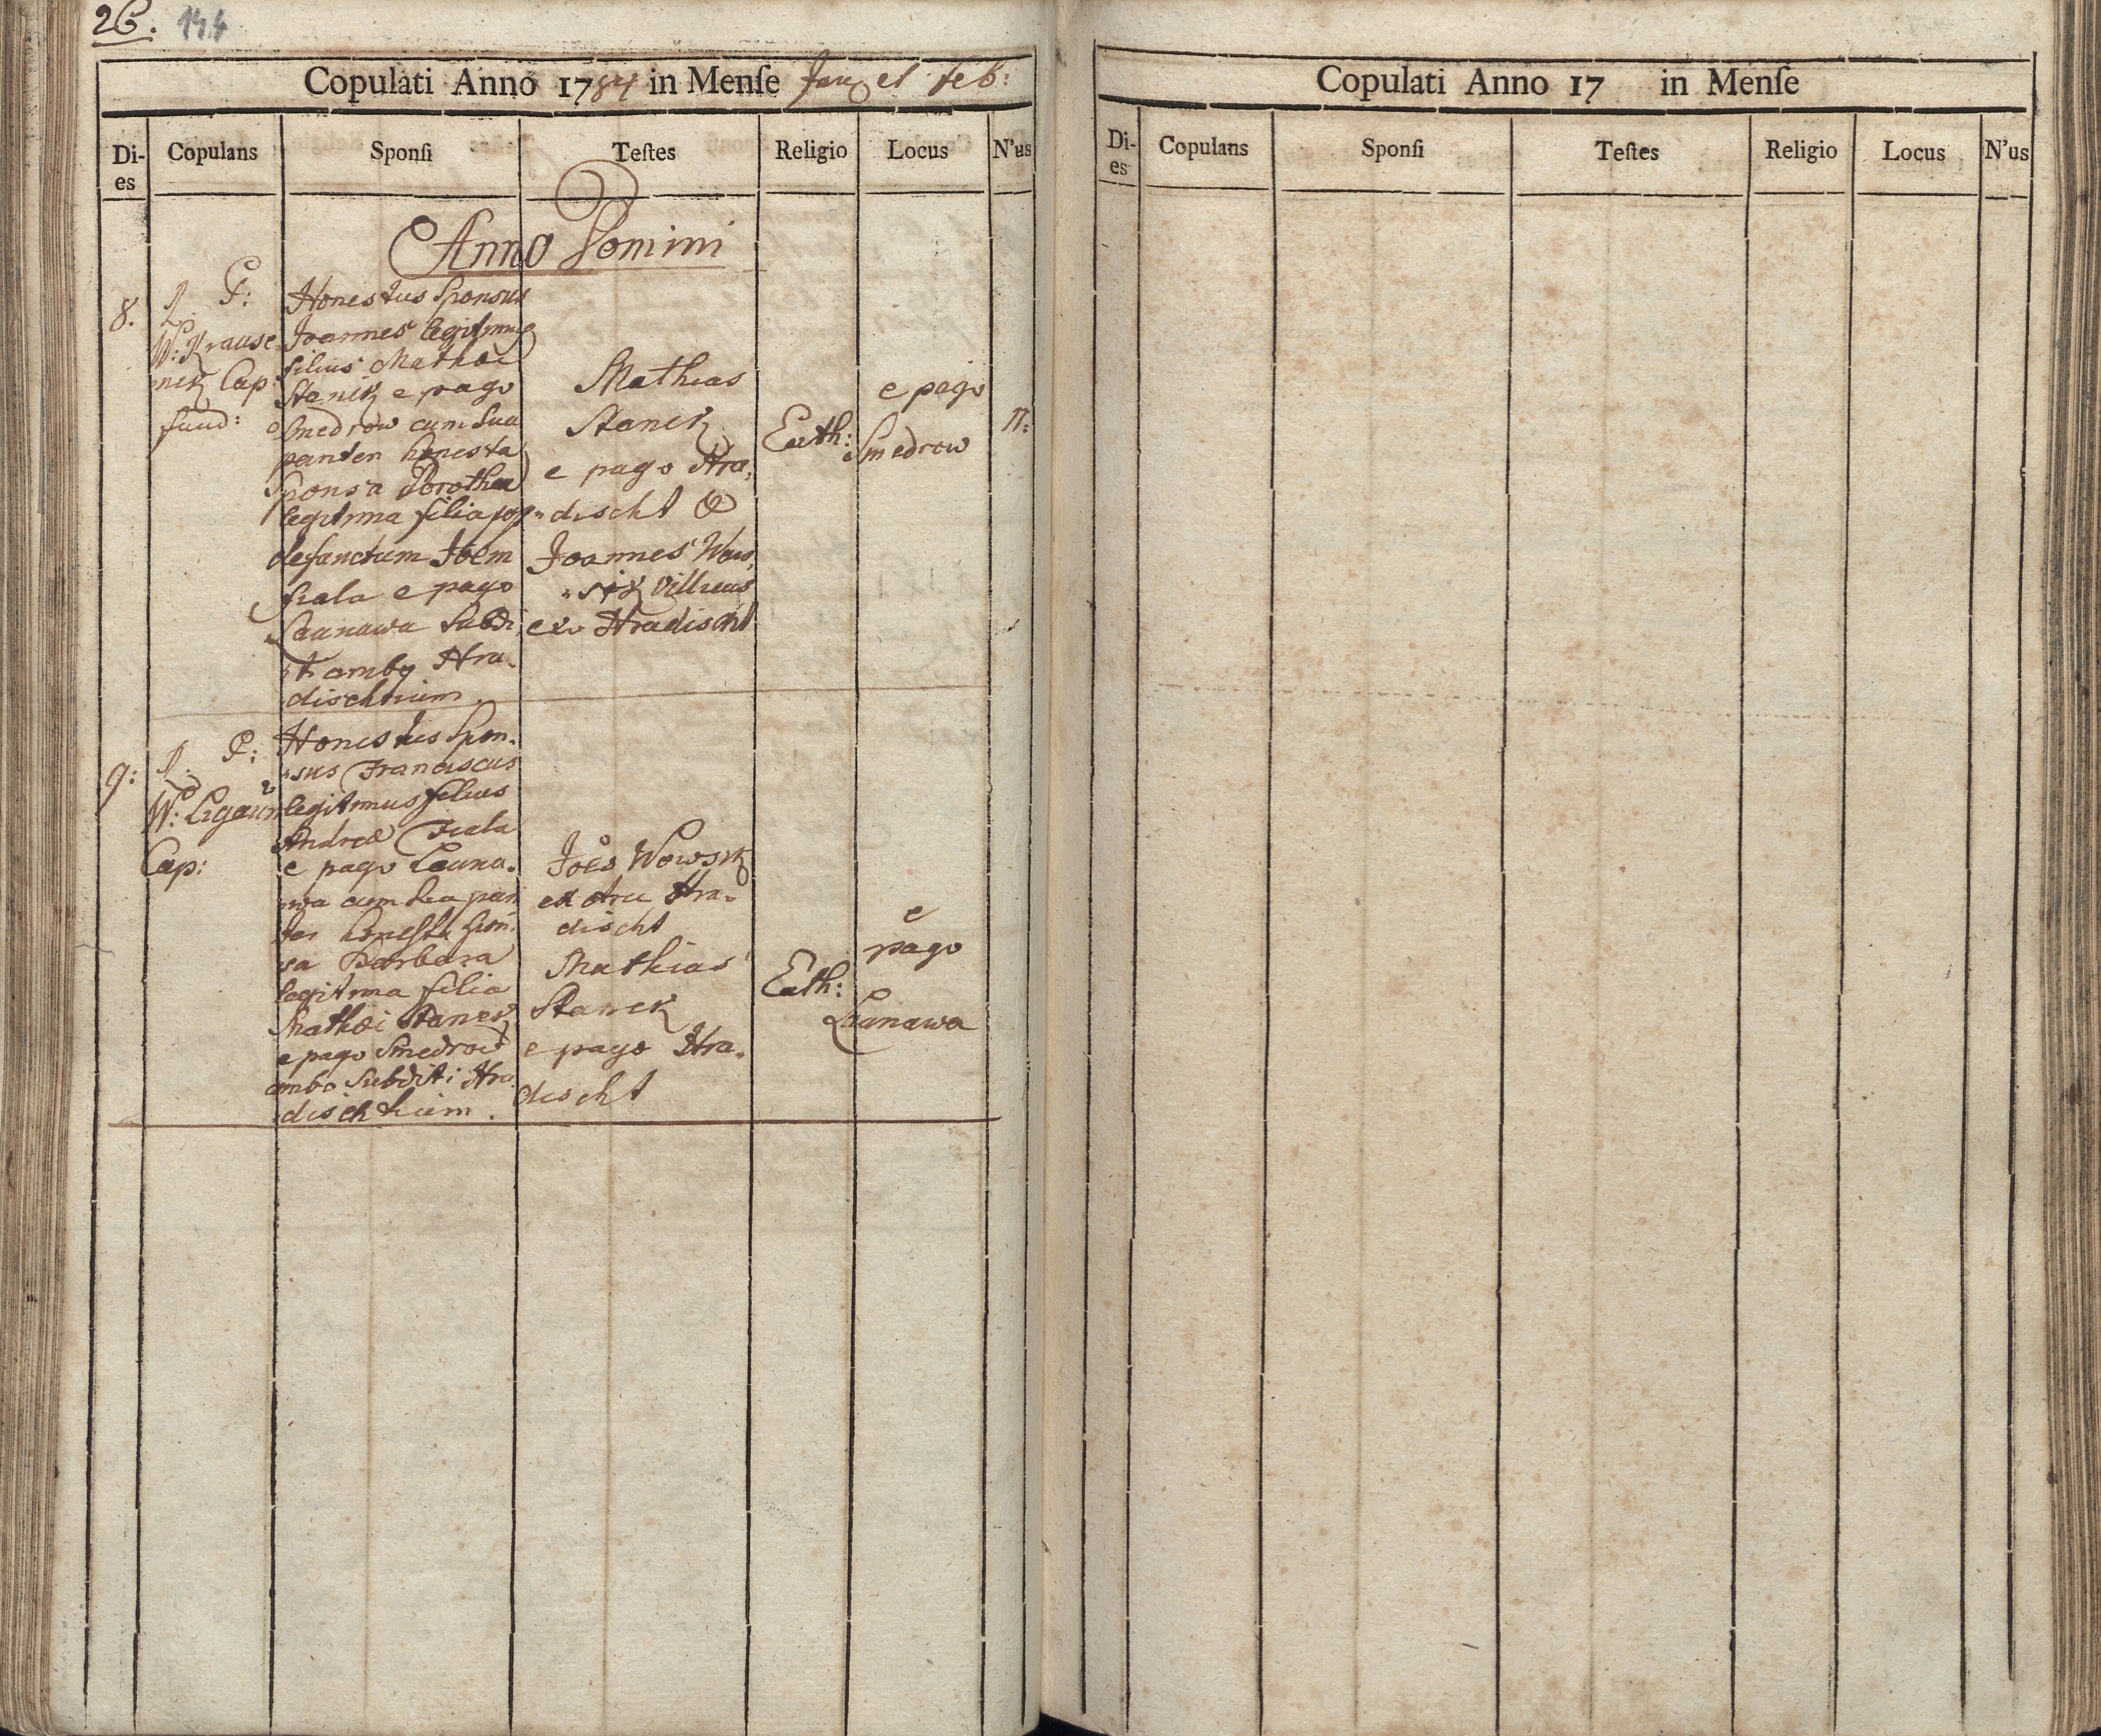 26. 144
Copulati Anno 1784 in Menſe Jan et Feb:
Di-
es
Copulans
Sponſi
Teſtes
Religio
Locus
N'us
Anno Domini
8.
P:
W: Krause-
nek Cap:
fund:
Honestus Sponsus
Joannes legitimus
filius Mathæi
Stanek e pago
Smedrow cum sua
pariter honesta
Sponsa Dorothea
legitima filia post
defunctum Joem
fiala e pago
Launawa Subdi
ti ambo Hra-
dischtium.
Mathias
Stanek
e pago Hra-
discht &
Joannes Wow,
sik Villicus
ex Hradischt
Cath:
e pago
Smedrow
17.
9:
P:
W: Ligaun
Cap:
Honestus Spon-
sus Franciscus
legitimus filius
Andreæ Fiala
e pago Launa-
wa cum sua pari
ter honesta spon-
sa Barbara
legitima filia
Mathæi Stanek
e pago Smedrow
ambo Subditi Hra
dischtium.
Joes Wowsik
ex Arce Hra-
discht
Mathias
Stanek
e pago Hra-
discht
Cath:
e
pago
Launawa
Copulati Anno 17 in Menſe
Di-
es
Copulans
Sponſi
Teſtes
Religio
Locus
N'us